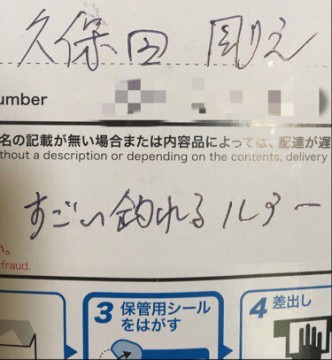 久保田 剛え
umber
名の記載が無い場合または内容品によっては、配達が遅
thout a description or depending on the contents, delivery
すごい釣れるルアー
い。
fraud.
3 保管用シールをはがす
4 差出し